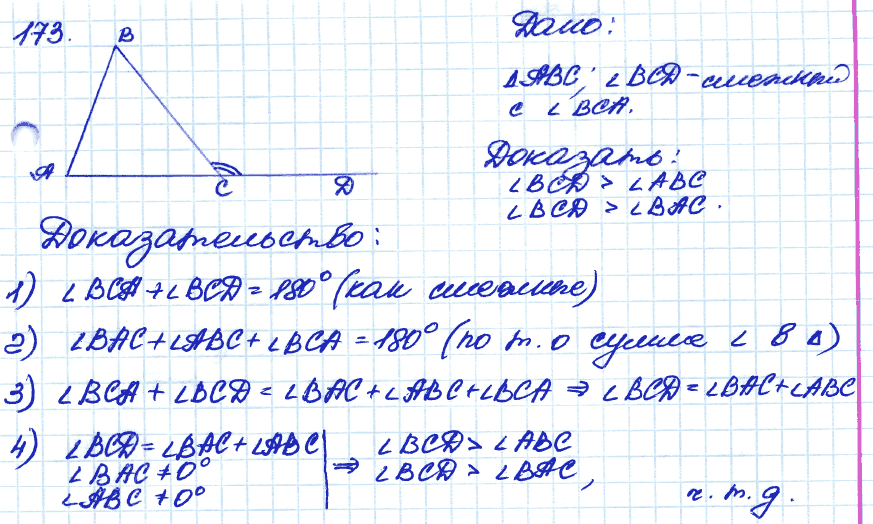 173.
B
A
C
D
Дано:
△ABC; ∠BCD - смежный
с ∠BCA.
Доказать:
∠BCD > ∠ABC
∠BCD > ∠BAC.
Доказательство:
1) ∠BCA + ∠BCD = 180° (как смежные)
2) ∠BAC + ∠ABC + ∠BCA = 180° (по т. о сумме ∠ в △)
3) ∠BCA + ∠BCD = ∠BAC + ∠ABC + ∠BCA ⇒ ∠BCD = ∠BAC + ∠ABC
4) ∠BCD = ∠BAC + ∠ABC | ⇒ ∠BCD > ∠ABC
∠BAC ≠ 0° | ∠BCD > ∠BAC,
∠ABC ≠ 0° |
ч. т. д.